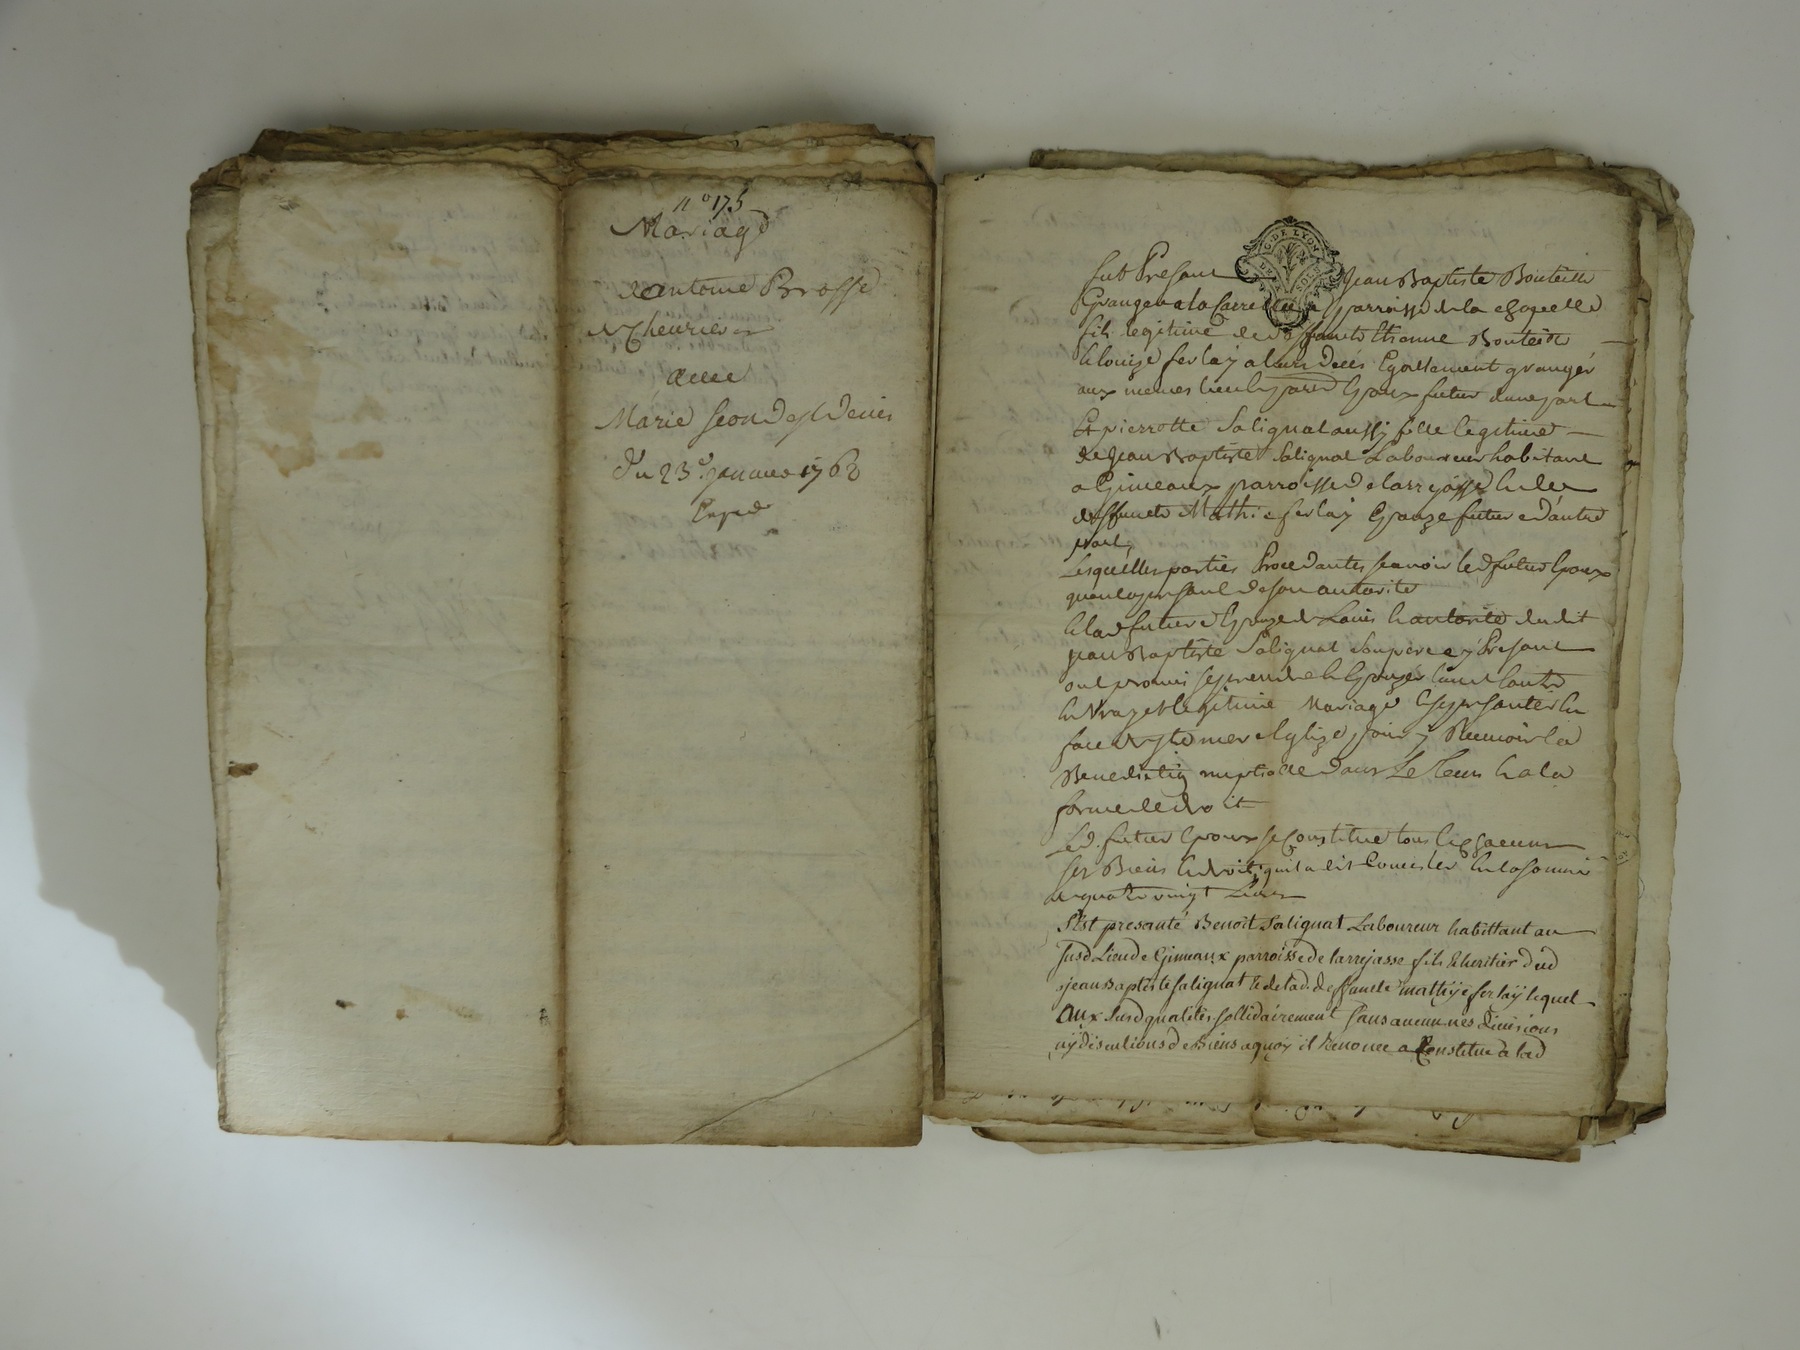 n° 175
Mariage
dantoine Brosse
de Cheurier
avec
Marie seon de st denis
Du 23e. janvier 1768
Exped
G. DE LYON
fut Present Jean Baptiste Bouteille
Granger a la parroisse de la chapelle
fils legitime de deffunct Ethienne Bouteille
& louize ferlay a leurs deces Egallement granger
aux memes lieu & paroisse Epoux futur dune part
Et pierrotte Salignat aussy fille legitime
de Jean Baptiste Salignat Laboureur habitant
a Gimeaux parroisse de larrejasse & de
deffuncte Mathie ferlay Epouze future d'autre
part,
Lesquelles parties Procedantes scavoir led futur Epoux
de son autorite
& lad future Epouze de Lavis & autorite dudit
jean Baptiste Salignat son pere cy Present
ont promis se prendre & Epouzer l'un & lautre
En Vray & legitime Mariage & se presanter En
face de ste mere Eglize pour y Recevoir la
Benediction nuptialle dans Le tems & a la
forme de droit
Led. futur Epoux se Constitue tous & chacuns
ses Biens & droits qu'il a dit Consister En la somme
de quatre vingt Livres
S'Est presanté Benoit Salignat Laboureur habittant au
susd Lieu de Gimeaux parroisse de larrejasse fils & heritier dud
jean Baptiste salignat & de lad. deffuncte mathiye ferlaÿ lequel
aux susd qualités sollidairement sans aucunnes divisions
nÿ discutions de Biens a quoÿ il Renonce a Constitué a lad